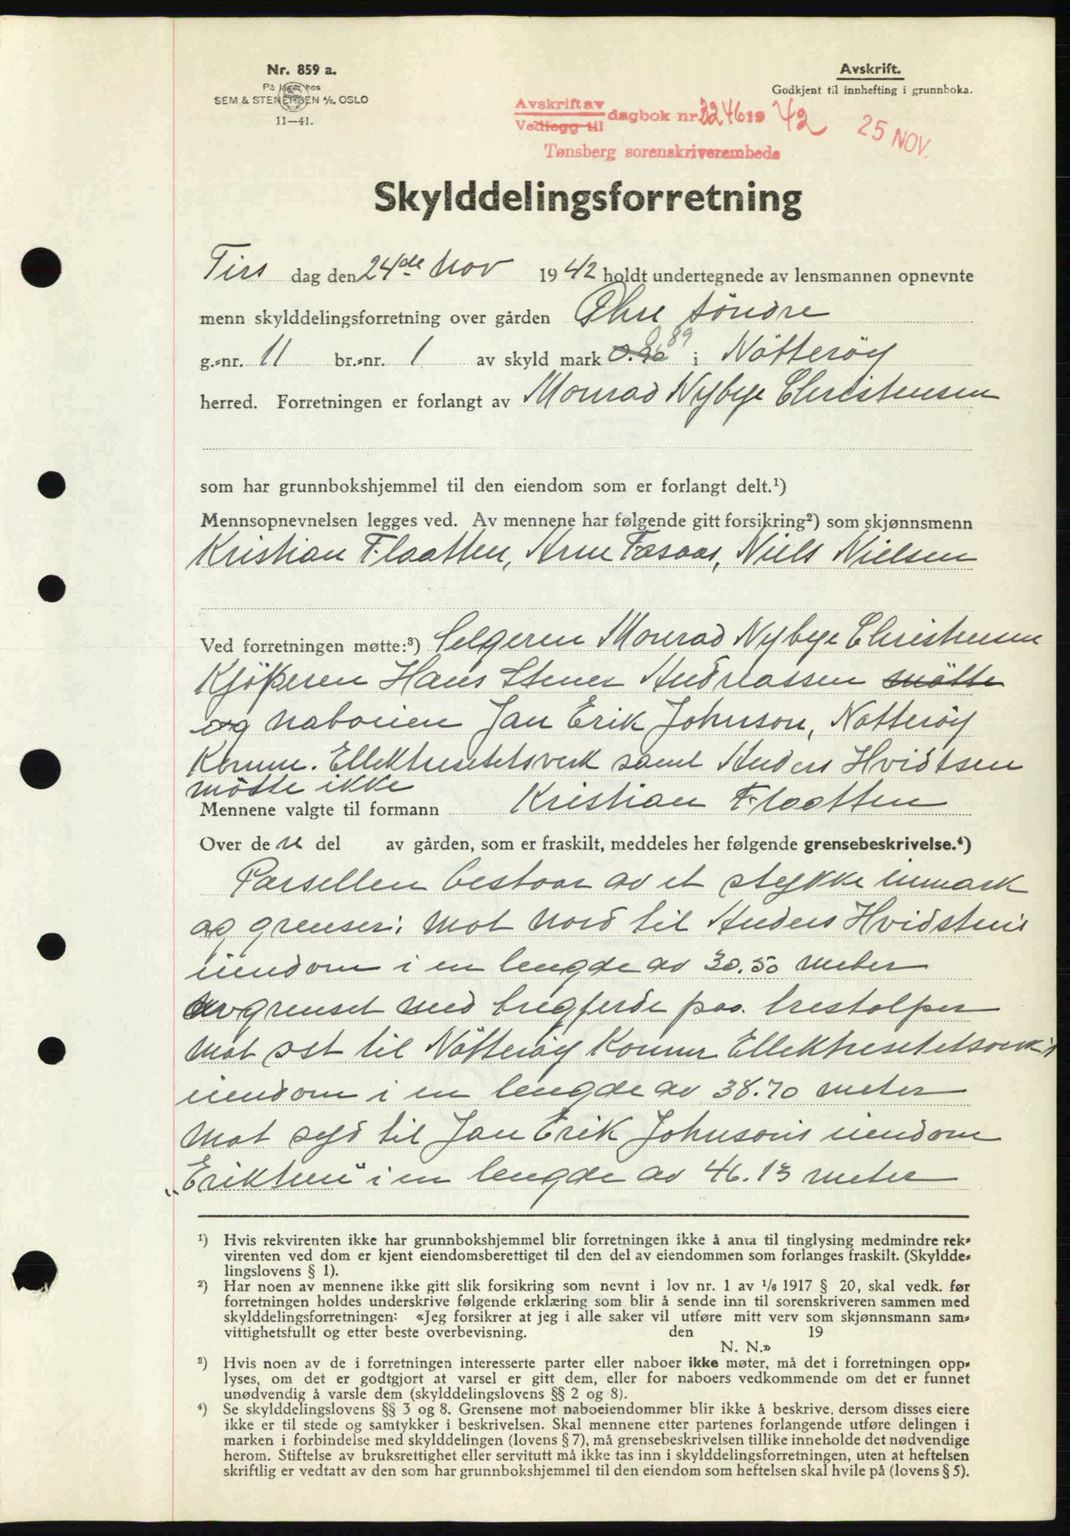 Nr. 859 a.
På lager hos
SEM & STENERSEN A/S, OSLO
11-41.
Avskrift.
Godkjent til innhefting i grunnboka.
Avskrift av
Vedlegg til
dagbok nr. 3246 19 42
25 NOV.
Tønsberg sorenskriverembede
Skylddelingsforretning
Tirs dag den 24de Nov 1942 holdt undertegnede av lensmannen opnevnte
menn skylddelingsforretning over gården Øhre søndre
g.-nr. 11 br.-nr. 1 av skyld mark 0.96 89 i Nötteröy
herred. Forretningen er forlangt av Monrad Nybye Christensen
som har grunnbokshjemmel til den eiendom som er forlangt delt.¹)
Mennsopnevnelsen legges ved. Av mennene har følgende gitt forsikring²) som skjønnsmenn
Kristian Flaatten, Arne Fosaas, Niels Nielsen
Ved forretningen møtte:³) Selgeren Monrad Nybye Christensen
Kjöperen Hans Stener Andreassen mötte
og naboerne Jan Erik Johnson, Nötteröy
Komm. Ellektrisitetsverk samt Anders Hvidtsen
mötte ikke
Mennene valgte til formann Kristian Flaatten
Over den del av gården, som er fraskilt, meddeles her følgende grensebeskrivelse.⁴)
Parsellen bestaar av et stykke inmark
og grenser: Mot Nord til Anders Hvidstens
eiendom i en lengde av 30.50 meter
avgrenset med bryggferde paa trestolper
Mot øst til Nötteröy Komm Ellektrisitetsverk's
eiendom i en lengde av 38.70 meter
Mot syd til Jan Erik Johnson's eiendom
„Eriktun" i en lengde av 46.13 meter
¹) Hvis rekvirenten ikke har grunnbokshjemmel blir forretningen ikke å anta til tinglysing medmindre rek-
virenten ved dom er kjent eiendomsberettiget til den del av eiendommen som forlanges fraskilt. (Skyldde-
lingslovens § 1).
²) Har noen av mennene ikke gitt slik forsikring som nevnt i lov nr. 1 av 1/6 1917 § 20, skal vedk. før
forretningen holdes underskrive følgende erklæring som blir å sende inn til sorenskriveren sammen med
skylddelingsforretningen: «Jeg forsikrer at jeg i alle saker vil utføre mitt verv som skjønnsmann sam-
vittighetsfullt og etter beste overbevisning. den 19
N. N.»
³) Hvis noen av de i forretningen interesserte parter eller naboer ikke møter, må det i forretningen opp-
lyses, om det er godtgjort at varsel er gitt dem, eller for naboers vedkommende om det er funnet
unødvendig å varsle dem (skylddelingslovens §§ 2 og 8).
⁴) Se skylddelingslovens §§ 3 og 8. Grensene mot naboeiendommer blir ikke å beskrive, dersom disses eiere
ikke er til stede og samtykker i beskrivelsen. Skal mennene etter partenes forlangende utføre delingen i
marken i forbindelse med skylddelingen (lovens § 7), må grensebeskrivelsen tillike inneholde det nødvendige
herom. Stiftelse av bruksrettighet eller servitutt må ikke tas inn i skylddelingsforretningen, uten at heftelsen
skriftlig er vedtatt av den som har grunnbokshjemmel til den eiendom som heftelsen skal hvile på (lovens § 5).